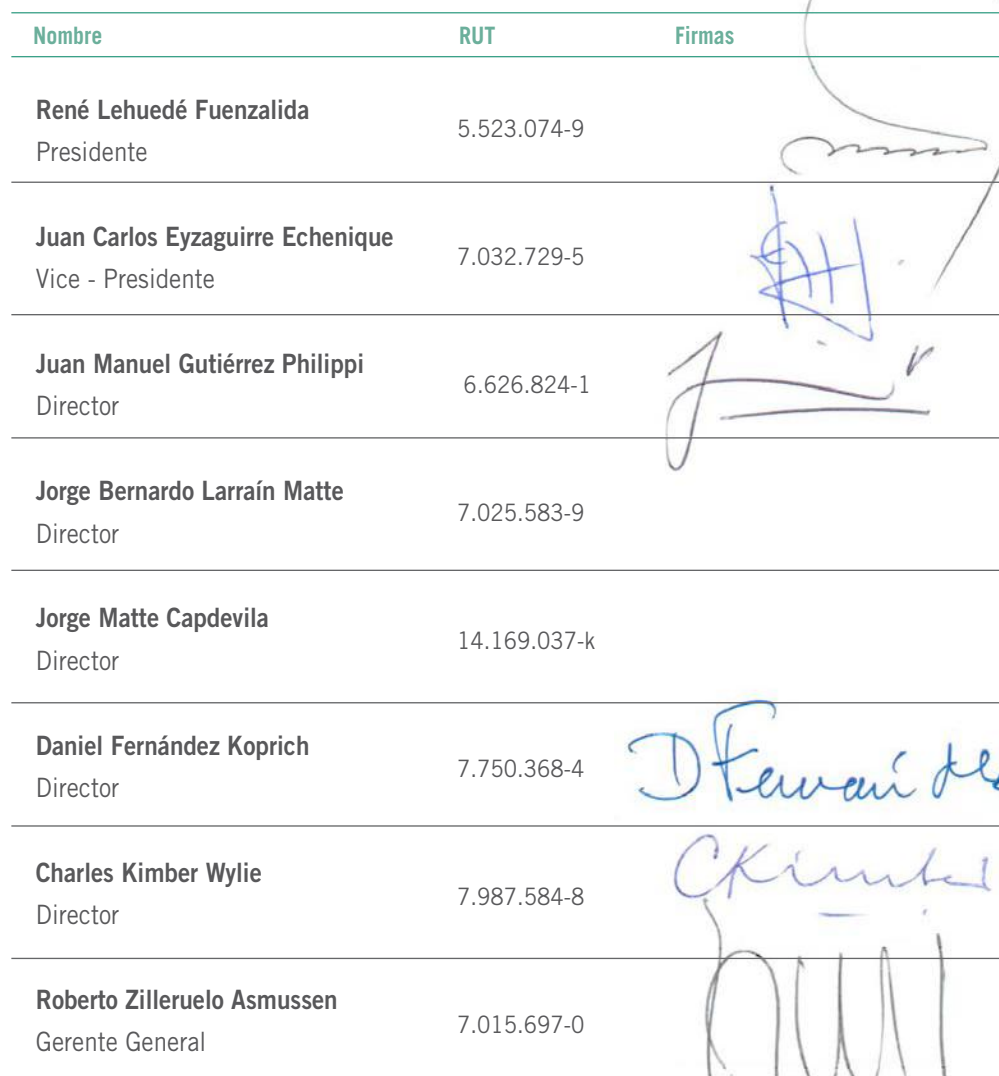 Nombre RUT Firmas
René Lehuedé Fuenzalida
Presidente
5.523.074-9
Juan Carlos Eyzaguirre Echenique
Vice - Presidente
7.032.729-5
Juan Manuel Gutiérrez Philippi
Director
6.626.824-1
Jorge Bernardo Larraín Matte
Director
7.025.583-9
Jorge Matte Capdevila
Director
14.169.037-k
Daniel Fernández Koprich
Director
7.750.368-4
D Fernández
Charles Kimber Wylie
Director
7.987.584-8
CKimber
Roberto Zilleruelo Asmussen
Gerente General
7.015.697-0